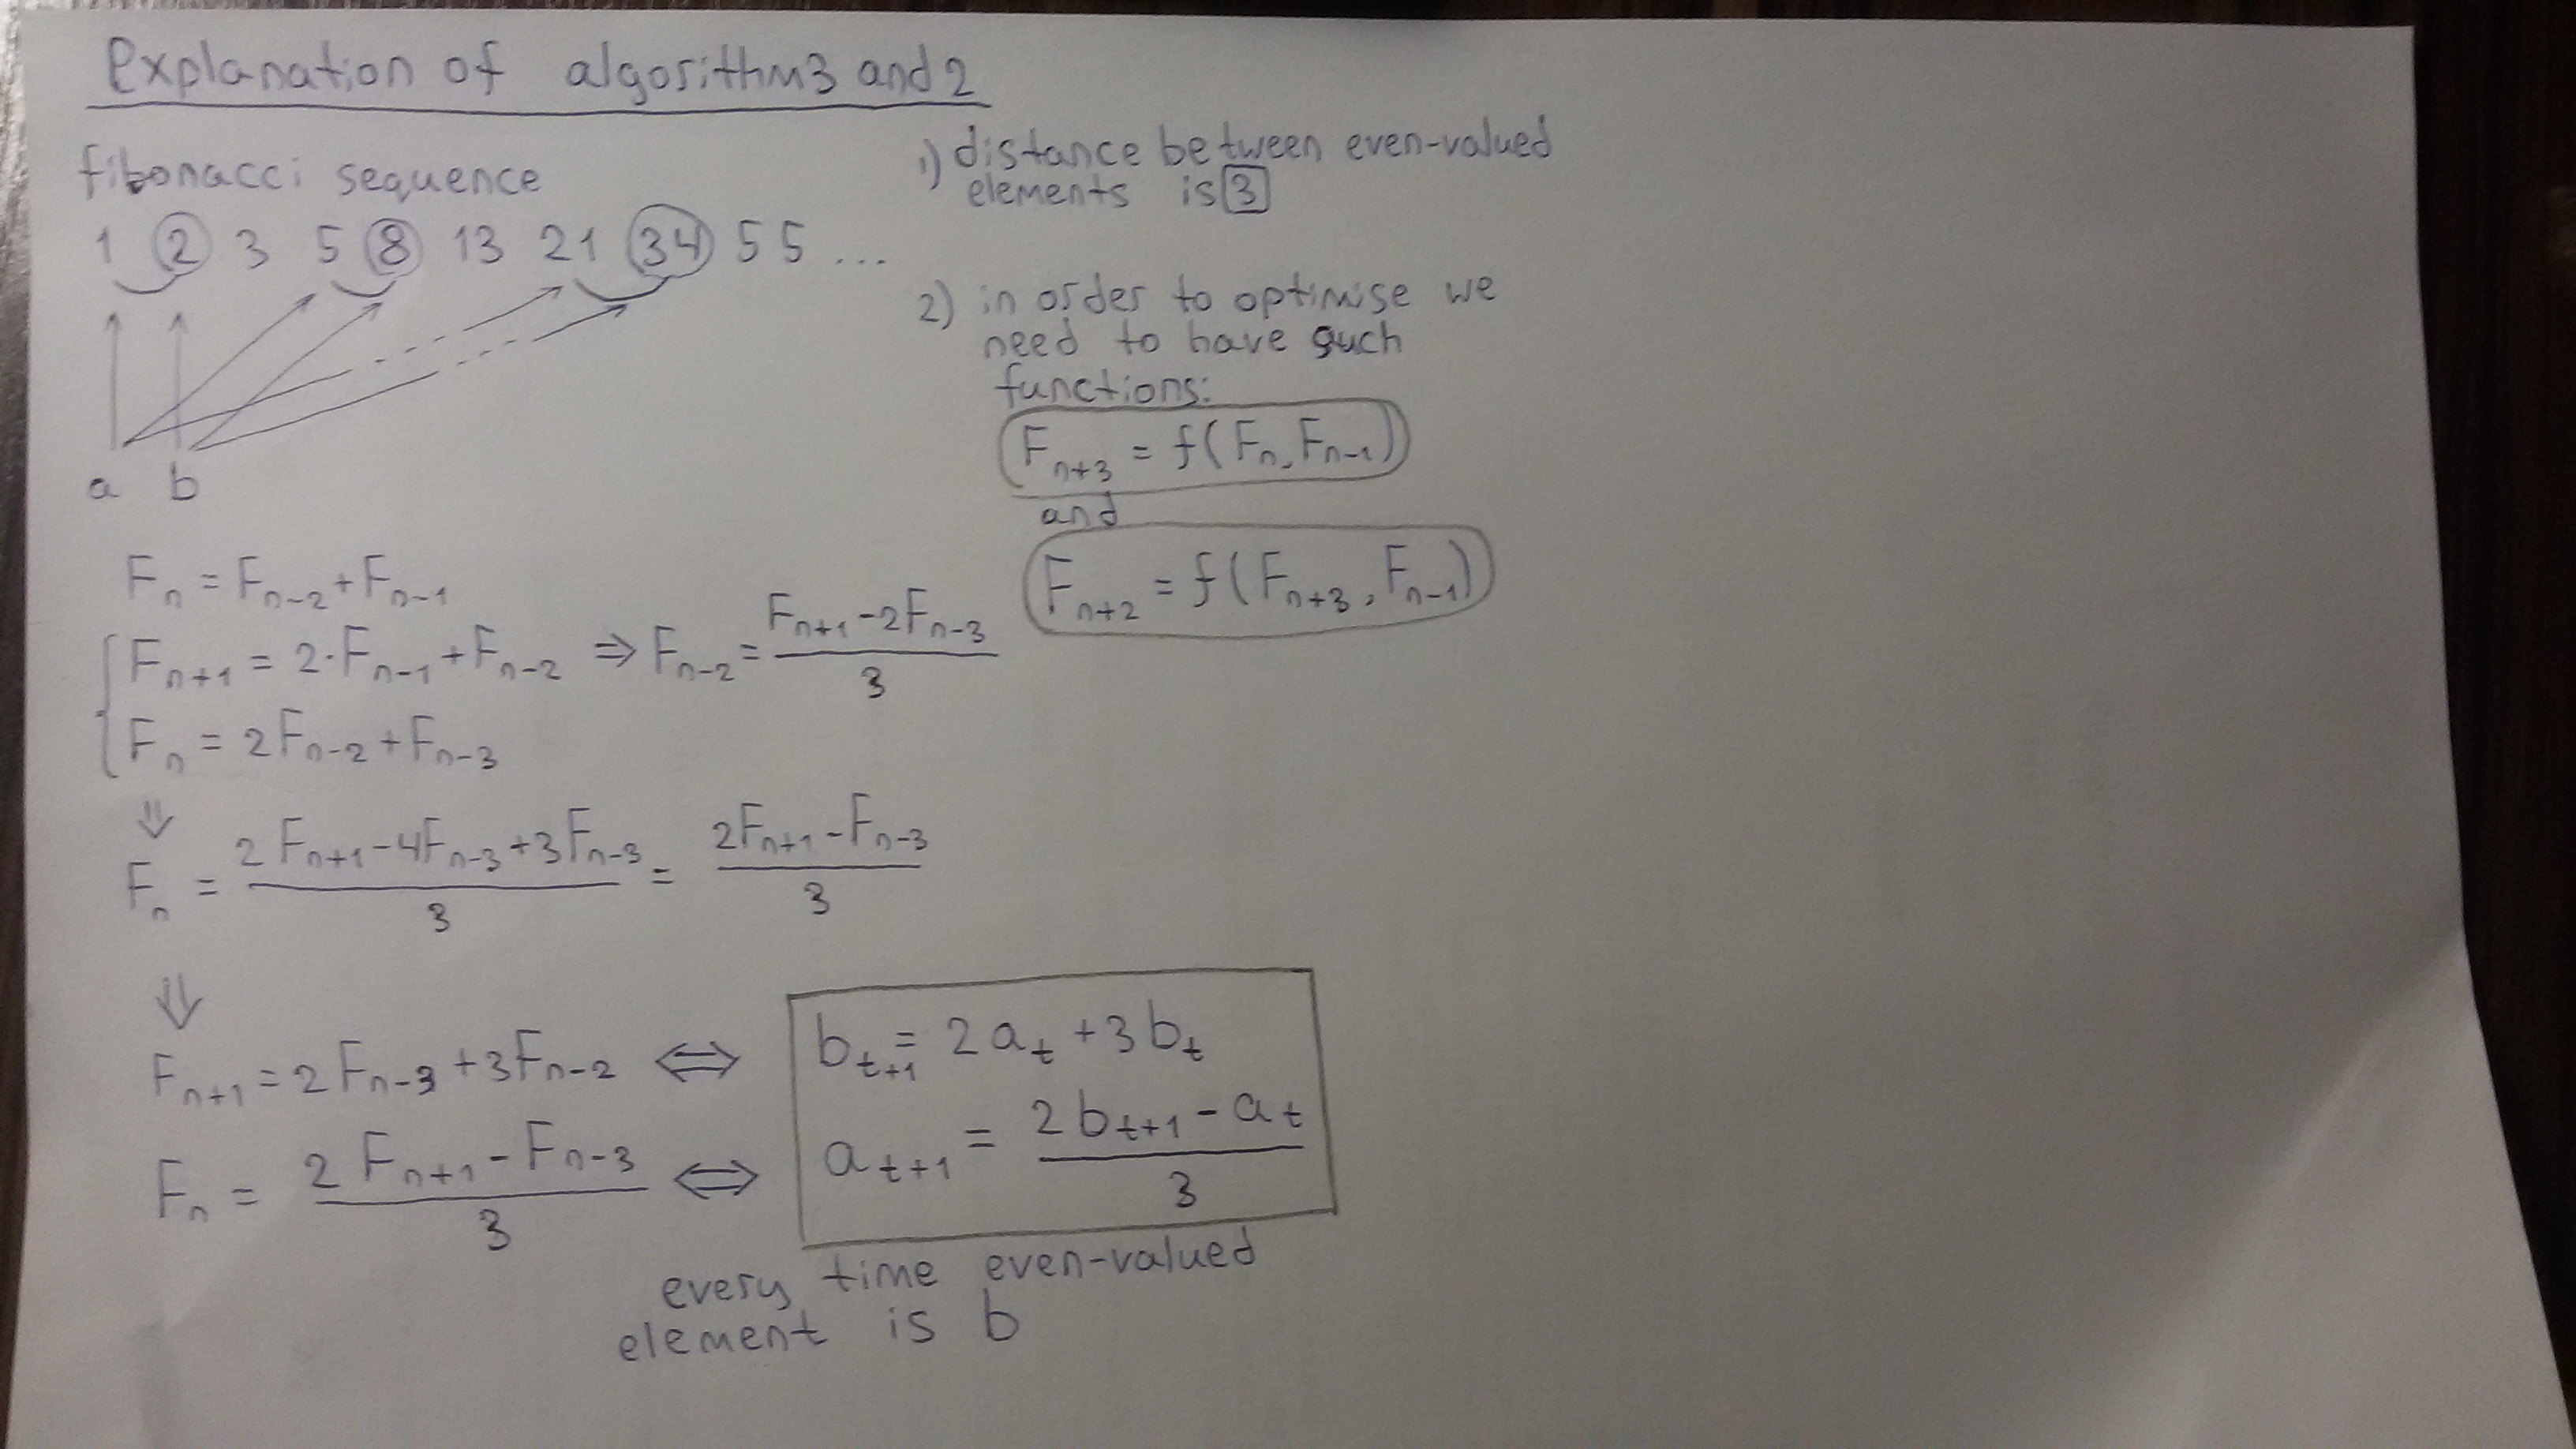 Explanation of algorithm3 and 2
fibonacci sequence
1 2 3 5 8 13 21 34 55 ...
a b
1) distance between even-valued
elements is 3
2) in order to optimise we
need to have such
functions:
F_{n+3} = f(F_n, F_{n-1})
and
F_{n+2} = f(F_{n+3}, F_{n-1})
F_n = F_{n-2} + F_{n-1}
F_{n+1} = 2·F_{n-1} + F_{n-2} ⇒ F_{n-2} = (F_{n+1} - 2F_{n-3}) / 3
F_n = 2F_{n-2} + F_{n-3}
⇓
F_n = (2F_{n+1} - 4F_{n-3} + 3F_{n-3}) / 3 = (2F_{n+1} - F_{n-3}) / 3
⇓
F_{n+1} = 2F_{n-3} + 3F_{n-2} ⇔ b_{t+1} = 2a_t + 3b_t
F_n = (2F_{n+1} - F_{n-3}) / 3 ⇔ a_{t+1} = (2b_{t+1} - a_t) / 3
every time even-valued
element is b